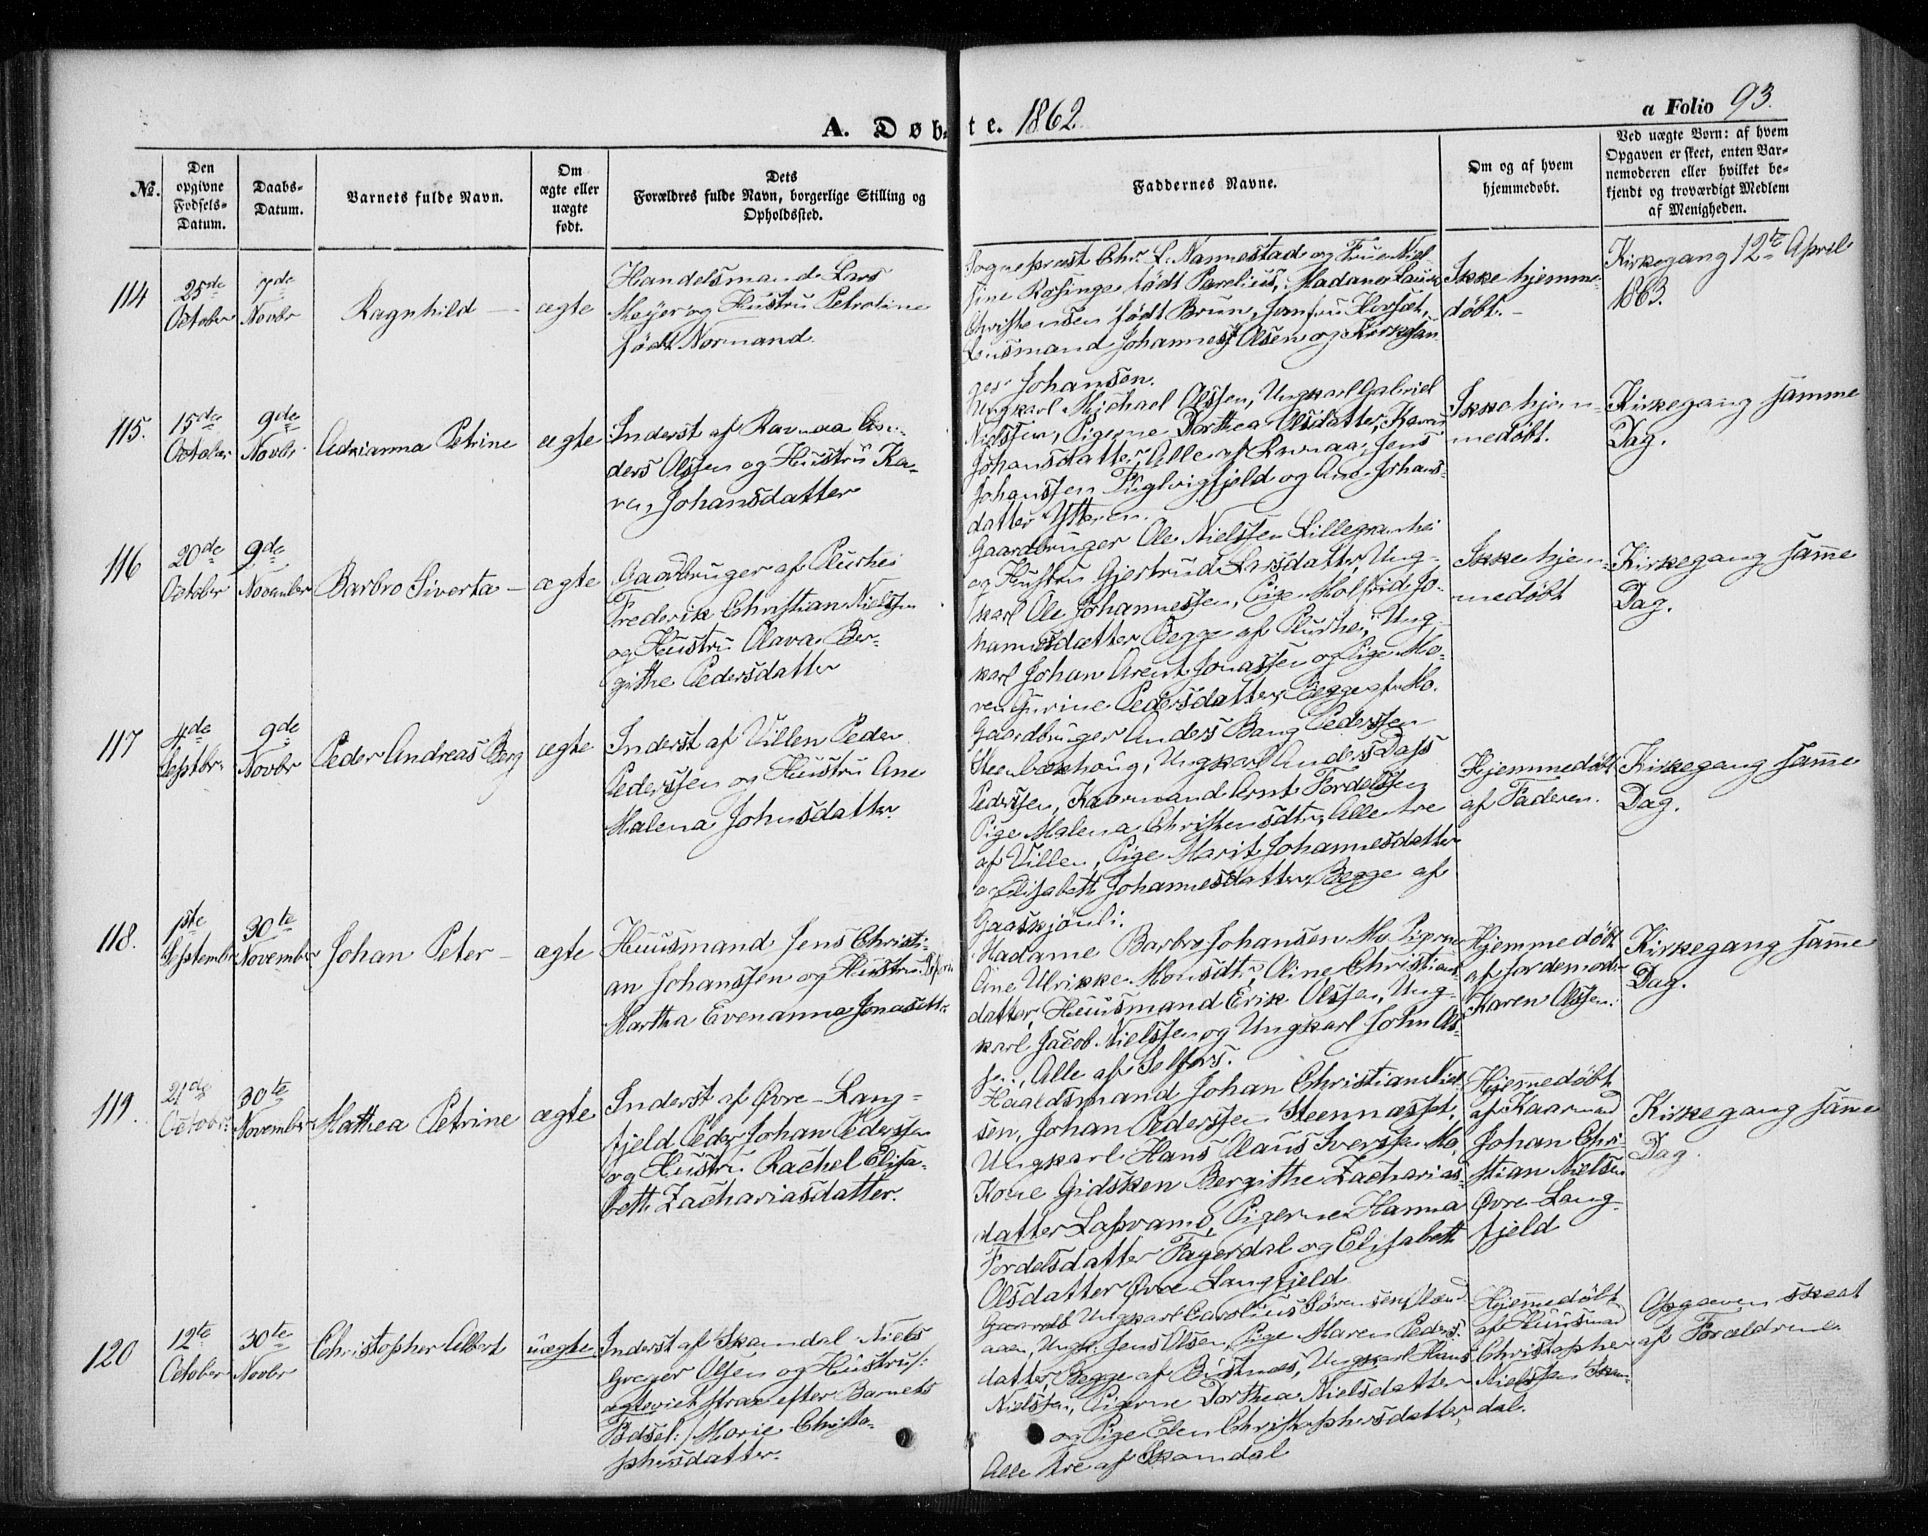 A. Døbte. 1862.
a Folio 93.
№.
Den opgivne Fødsels-Datum.
Daabs-Datum.
Barnets fulde Navn.
Om ægte eller uægte født.
Dets Forældres fulde Navn, borgerlige Stilling og Opholdssted.
Faddernes Navne.
Om og af hvem hjemmedøbt.
Ved uægte Børn: af hvem Opgaven er skeet, enten Barnemoderen eller hvilket bekjendt og troværdigt Medlem af Menigheden.
114
25de October
7de Novbr
Ragnhild
ægte
Handelsmand Lars
Meyer og Hustru Petroline
født Normand.
Sogneprest Chr. L. Nannestad og Frue Niel-
sine Røsinge født Parelius, Madame Laura
Christensen født Brun, Jomfru Horsæt,
Lensmand Johannes Olsen og Kirkesan
ger Johansen.
Ikke hjemme-
døbt.
Kirkegang 12te April
1863.
115.
15de October
9de Novbr
Adrianna Petrine
ægte
Inderst af Ravnaa An-
ders Olssen og Hustru Ka-
ren Johansdatter
Ungkarl Michael Olssen, Ungkarl Gabriel
Nielssen, Pigerne Dorthea Olsdatter, Karen
Johansdatter, Alle af Ravnaa, Jens
Johanssen Fuglvigfjeld og Ane Johans-
datter Ytteren.
Ikke hjem-
medøbt.
Kirkegang samme
Dag.
116
20de October
9de November
Barbro Siverta
ægte
Gaardbruger af Plurhei
Frederik Christian Nielssen
og Hustru Olava Ber-
githe Pedersdatter
Gaardbruger Ole Nielssen
og Hustru Gjertrud Larsdatter, Ung-
karl Ole Johannessen, Pige Molfrid Jo-
hannesdatter Begge af Plurhei, Ung-
karl Johan Arent Jonassen og Pige Ma-
ren Gurine Pedersdatter, Begge af Mo.
Ikke hjem-
medøbt
Kirkegang samme
Dag.
117
4de Septbr.
9de Novbr
Peder Andreas Berg
ægte
Inderst af Villen Peder
Pederssen og Hustru Ane
Malena Johnsdatter.
Gaardbruger Anders Bang Pederssen
Steenbækhaug, Ungkarl Anders Dass
Pederssen, Kaarmand Arnt Fordelssen
Pige Malena Christensdtr, Alle tre
af Villen, Pige Marit Johannesdatter
og Elisabeth Johannesdatter, Begge af
Gaaskjønli.
Hjemmedøbt
af Faderen.
Kirkegang samme
Dag.
118.
1ste September
30te November
Johan Peter
ægte
Huusmand Jens Christi-
an Johanssen og Hustru
Martha Evenanna Jonasdtr.
Madame Barbro Johansen Mo, Pigerne
Ane Ulrikke Monsdtr, Oline Christians
datter, Huusmand Erik Olssen, Ung-
karl Jacob Nielssen og Ungkarl John Ol-
sen, Alle af Selfors.
Hjemmedøbt
af Jordemodr
Karen Olssen.
Kirkegang samme
Dag.
119.
21de Octobr.
30te November
Mathea Petrine
ægte
Inderst af Øvre-Lang-
fjeld Peder Johan Pederssen
og Hustru Rachel Elisa-
beth Zachariasdatter.
Johan Christian Niel-
sen, Johan Pederssen Steennæsset,
Ungkarl Hans Claus Iverssen Mo,
Kone Gidsken Bergithe Zacharias-
datter, Pigerne Hanna
Fordelsdatter Fagerdal og Elisabeth
Olsdatter Øvre Langfjeld
Hjemmedøbt
af Kaarmand
Johan Chri-
stian Nielsen
Øvre-Lang-
fjeld
Kirkegang samme
Dag.
120
12te October
30te Novbr
Christopher Albert
uægte
Inderst af Skamdal Niels
Greger Olsen og Hustru /:
ægteviet strax efter Barnets
Fødsel :/ Marie Christo-
phersdatter.
Ungkarl Carolius Sørensen,
Ungk. Jens Olsen, Pige Maren Peders-
datter, Begge af Bustnes, Ungkarl Hans
Nielssen, Pigerne Dorthea Nielsdatter
og Pige Elen Christophersdatter,
Alle tre af Skamdal
Hjemmedøbt
af Huusmand
Christopher
Nielssen Skam-
dal.
Opgaven skeet
af Forældrene